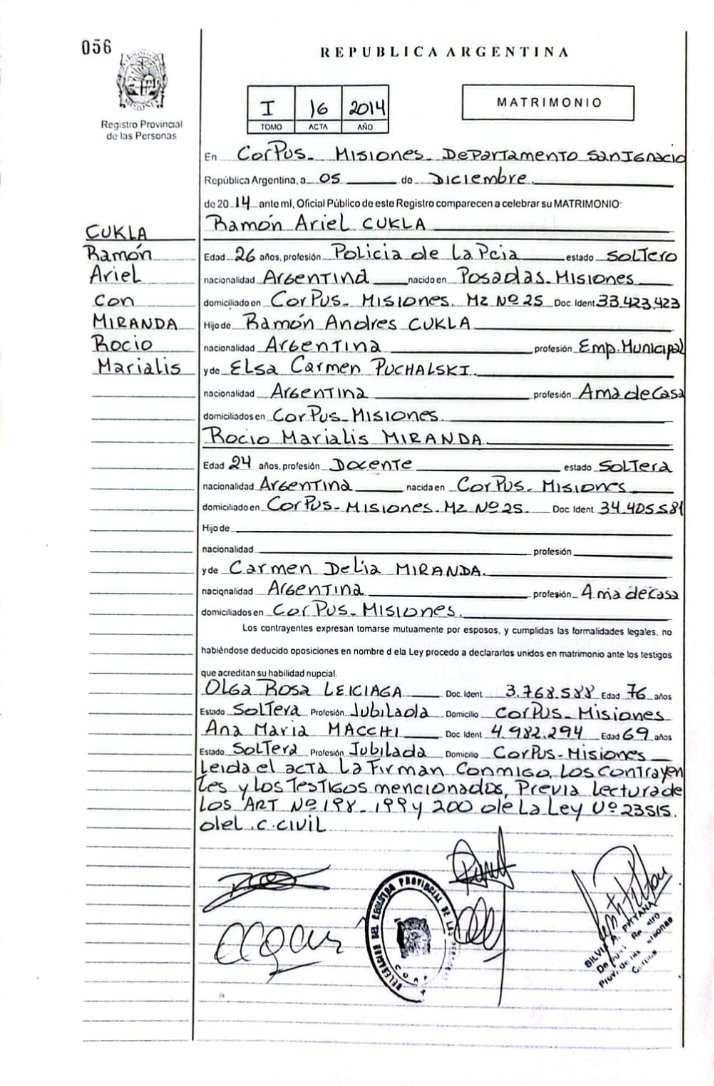 056
REPUBLICA ARGENTINA
Registro Provincial
de las Personas
I 16 2014
TOMO ACTA AÑO
MATRIMONIO
En Corpus - Misiones - Departamento San Ignacio
República Argentina, a 05 de Diciembre
de 2014 ante mí, Oficial Público de este Registro comparecen a celebrar su MATRIMONIO:
CUKLA
Ramón
Ariel
con
MIRANDA
Rocio
Marialis
Ramón Ariel CUKLA
Edad 26 años, profesión Policia de La Pcia estado Soltero
nacionalidad Argentina nacido en Posadas. Misiones
domiciliado en Corpus - Misiones. Mz Nº 25 Doc Ident 33.423.423
Hijo de Ramón Andres CUKLA
nacionalidad Argentina profesión Emp. Municipal
y de Elsa Carmen PUCHALSKI.
nacionalidad Argentina profesión Ama de Casa
domiciliados en Corpus - Misiones.
Rocio Marialis MIRANDA
Edad 24 años, profesión Docente estado Soltera
nacionalidad Argentina nacida en Corpus - Misiones
domiciliado en Corpus - Misiones. Mz Nº 25. Doc Ident 34.405581
Hijo de
nacionalidad profesión
y de Carmen Delia MIRANDA.
nacionalidad Argentina profesión Ama de casa
domiciliados en Corpus - Misiones.
Los contrayentes expresan tomarse mutuamente por esposos, y cumplidas las formalidades legales, no
habiéndose deducido oposiciones en nombre d ela Ley procedo a declararlos unidos en matrimonio ante los testigos
que acreditan su habilidad nupcial.
Olga Rosa LEICIAGA Doc. Ident 3.768.588 Edad 76 años
Estado Soltera Profesión Jubilada Domicilio Corpus - Misiones
Ana Maria MACCHI Doc Ident 4.982.294 Edad 69 años
Estado Soltera Profesión Jubilada Domicilio Corpus - Misiones
Leida el acta La Firman Conmigo, Los Contrayen
tes y los Testigos mencionados, Previa Lectura de
los ART Nº 198 - 199 y 200 de La Ley Nº 23515.
del C. Civil
DELEGACION DEL REGISTRO PROVINCIAL DE LAS
SILVIA A.